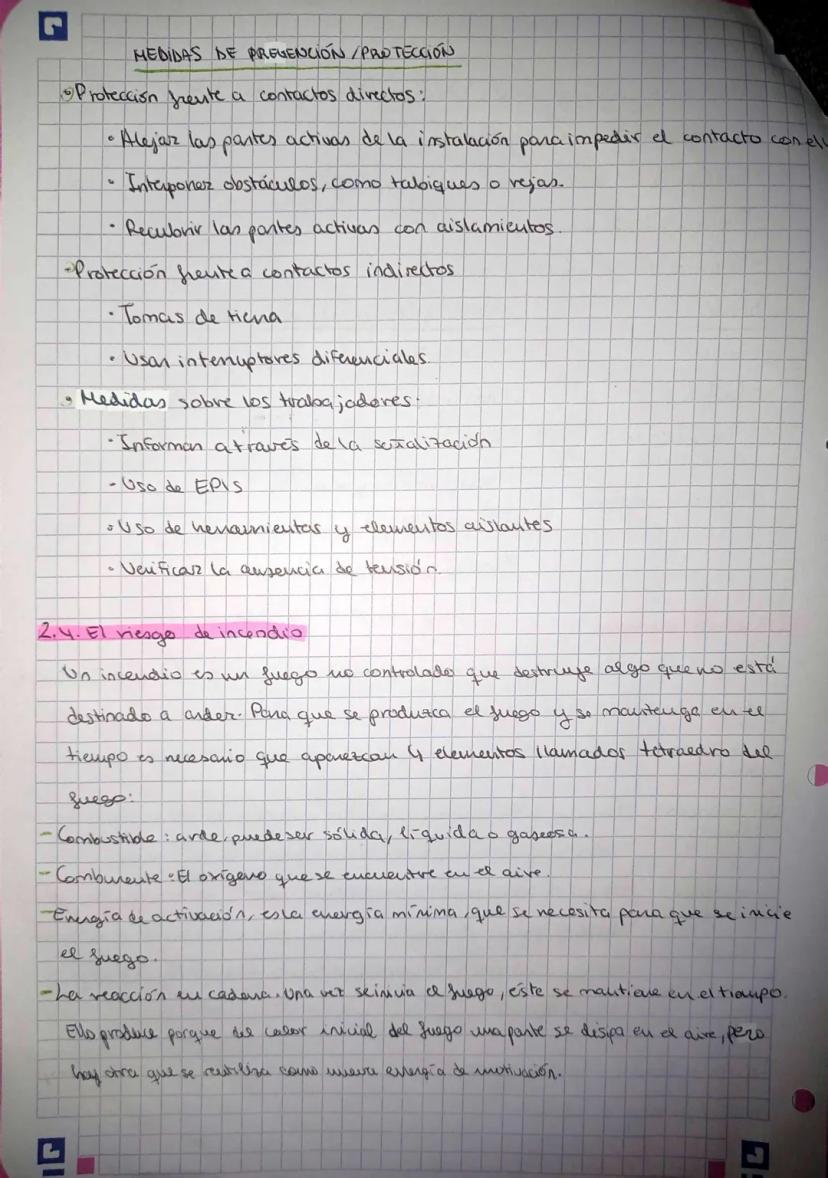 MEDIDAS DE PREVENCIÓN/PROTECCIÓN
Protección frente a contactos directos:
• Alejar las partes activas de la instalación para impedir el contacto con el
• Interponer obstáculos, como tabiques o rejas.
• Recubrir las partes activas con aislamientos.
- Protección frente a contactos indirectos
• Tomas de tierra
• Usar interruptores diferenciales.
• Medidas sobre los trabajadores:
• Informan a través de la señalización
- Uso de EPIs
• Uso de herramientas y elementos aislantes
• Verificar la ausencia de tensión.
2.4. El riesgo de incendio
Un incendio es un fuego no controlado que destruye algo que no está
destinado a arder. Para que se produzca el fuego y se mantenga en el
tiempo es necesario que aparezcan 4 elementos llamados tetraedro del
fuego:
- Combustible: arde, puede ser sólida, líquida o gaseosa.
- Comburente: El oxígeno que se encuentre en el aire.
- Energía de activación, es la energía mínima, que se necesita para que se inicie
el fuego.
- La reacción en cadena. Una vez se inicia el fuego, éste se mantiene en el tiempo.
Ello produce porque del calor inicial del fuego una parte se disipa en el aire, pero
hay otra que se reutiliza como nueva energía de motivación.